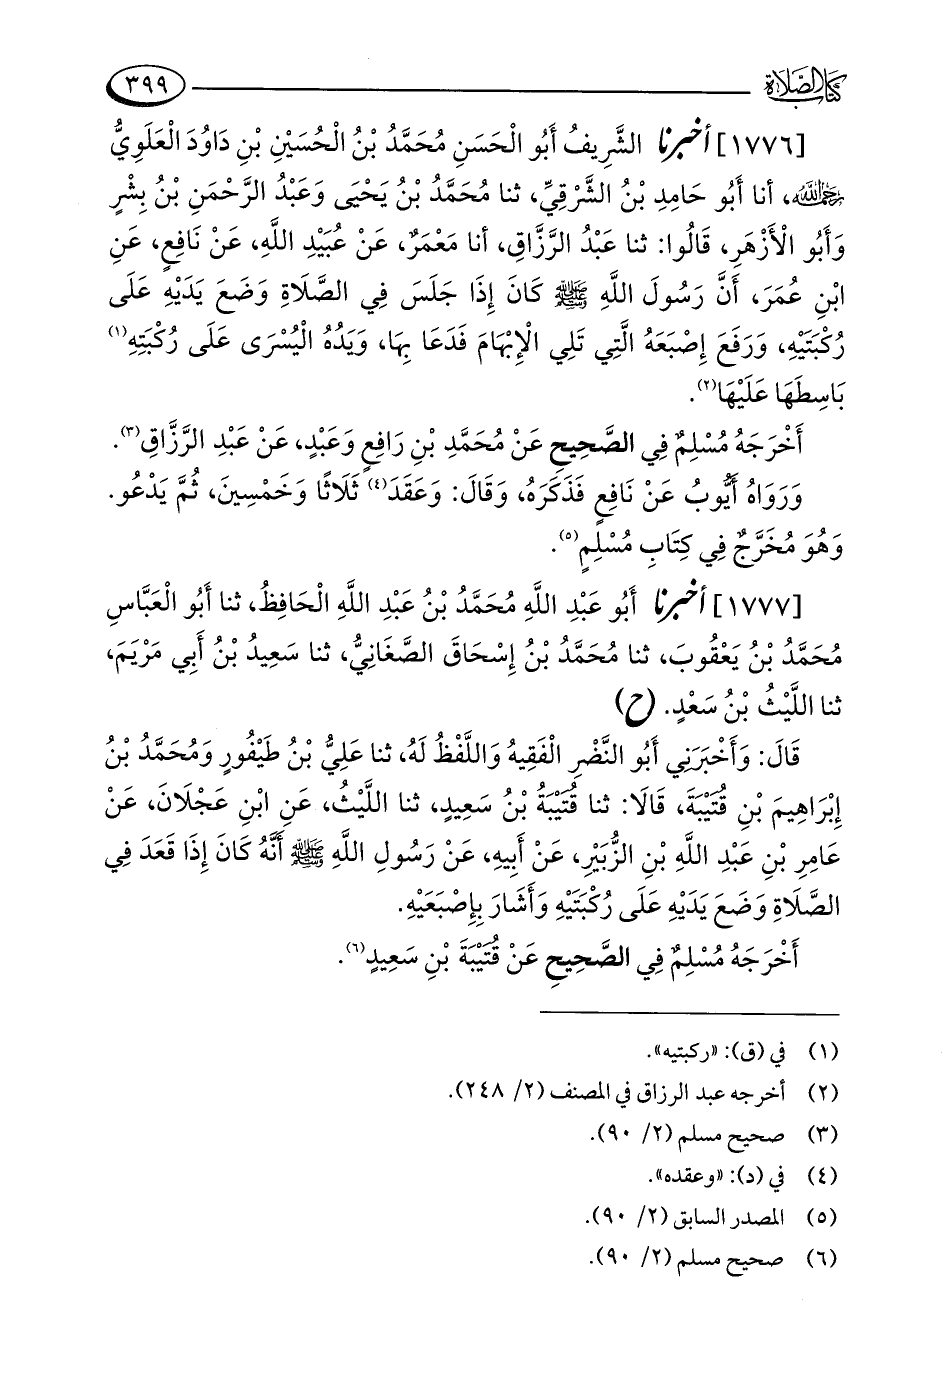 كتاب الصلاة ٣٩٩
[١٧٧٦] أخبرنا الشَّرِيفُ أَبُو الْحَسَنِ مُحَمَّدُ بْنُ الْحُسَيْنِ بْنِ دَاوُدَ الْعَلَوِيُّ
رحمه الله، أنا أَبُو حَامِدِ بْنُ الشَّرْقِيِّ، ثنا مُحَمَّدُ بْنُ يَحْيَى وَعَبْدُ الرَّحْمَنِ بْنُ بِشْرٍ
وَأَبُو الْأَزْهَرِ، قَالُوا: ثنا عَبْدُ الرَّزَّاقِ، أنا مَعْمَرٌ، عَنْ عُبَيْدِ اللَّهِ، عَنْ نَافِعٍ، عَنِ
ابْنِ عُمَرَ، أَنَّ رَسُولَ اللَّهِ ﷺ كَانَ إِذَا جَلَسَ فِي الصَّلَاةِ وَضَعَ يَدَيْهِ عَلَى
رُكْبَتَيْهِ، وَرَفَعَ إِصْبَعَهُ الَّتِي تَلِي الْإِبْهَامَ فَدَعَا بِهَا، وَيَدُهُ الْيُسْرَى عَلَى رُكْبَتِهِ(١)
بَاسِطَهَا عَلَيْهَا(٢).
أَخْرَجَهُ مُسْلِمٌ فِي الصَّحِيحِ عَنْ مُحَمَّدِ بْنِ رَافِعٍ وَعَبْدٍ، عَنْ عَبْدِ الرَّزَّاقِ(٣).
وَرَوَاهُ أَيُّوبُ عَنْ نَافِعٍ فَذَكَرَهُ، وَقَالَ: وَعَقَدَ(٤) ثَلَاثًا وَخَمْسِينَ، ثُمَّ يَدْعُو.
وَهُوَ مُخَرَّجٌ فِي كِتَابِ مُسْلِمٍ(٥).
[١٧٧٧] أخبرنا أَبُو عَبْدِ اللَّهِ مُحَمَّدُ بْنُ عَبْدِ اللَّهِ الْحَافِظُ، ثنا أَبُو الْعَبَّاسِ
مُحَمَّدُ بْنُ يَعْقُوبَ، ثنا مُحَمَّدُ بْنُ إِسْحَاقَ الصَّغَانِيُّ، ثنا سَعِيدُ بْنُ أَبِي مَرْيَمَ،
ثنا اللَّيْثُ بْنُ سَعْدٍ. (ح)
قَالَ: وَأَخْبَرَنِي أَبُو النَّضْرِ الْفَقِيهُ وَاللَّفْظُ لَهُ، ثنا عَلِيُّ بْنُ طَيْفُورٍ وَمُحَمَّدُ بْنُ
إِبْرَاهِيمَ بْنِ قُتَيْبَةَ، قَالَا: ثنا قُتَيْبَةُ بْنُ سَعِيدٍ، ثنا اللَّيْثُ، عَنِ ابْنِ عَجْلَانَ، عَنْ
عَامِرِ بْنِ عَبْدِ اللَّهِ بْنِ الزُّبَيْرِ، عَنْ أَبِيهِ، عَنْ رَسُولِ اللَّهِ ﷺ أَنَّهُ كَانَ إِذَا قَعَدَ فِي
الصَّلَاةِ وَضَعَ يَدَيْهِ عَلَى رُكْبَتَيْهِ وَأَشَارَ بِإِصْبَعَيْهِ.
أَخْرَجَهُ مُسْلِمٌ فِي الصَّحِيحِ عَنْ قُتَيْبَةَ بْنِ سَعِيدٍ(٦).
(١) في (ق): «ركبتيه».
(٢) أخرجه عبد الرزاق في المصنف (٢/ ٢٤٨).
(٣) صحيح مسلم (٢/ ٩٠).
(٤) في (د): «وعقده».
(٥) المصدر السابق (٢/ ٩٠).
(٦) صحيح مسلم (٢/ ٩٠).